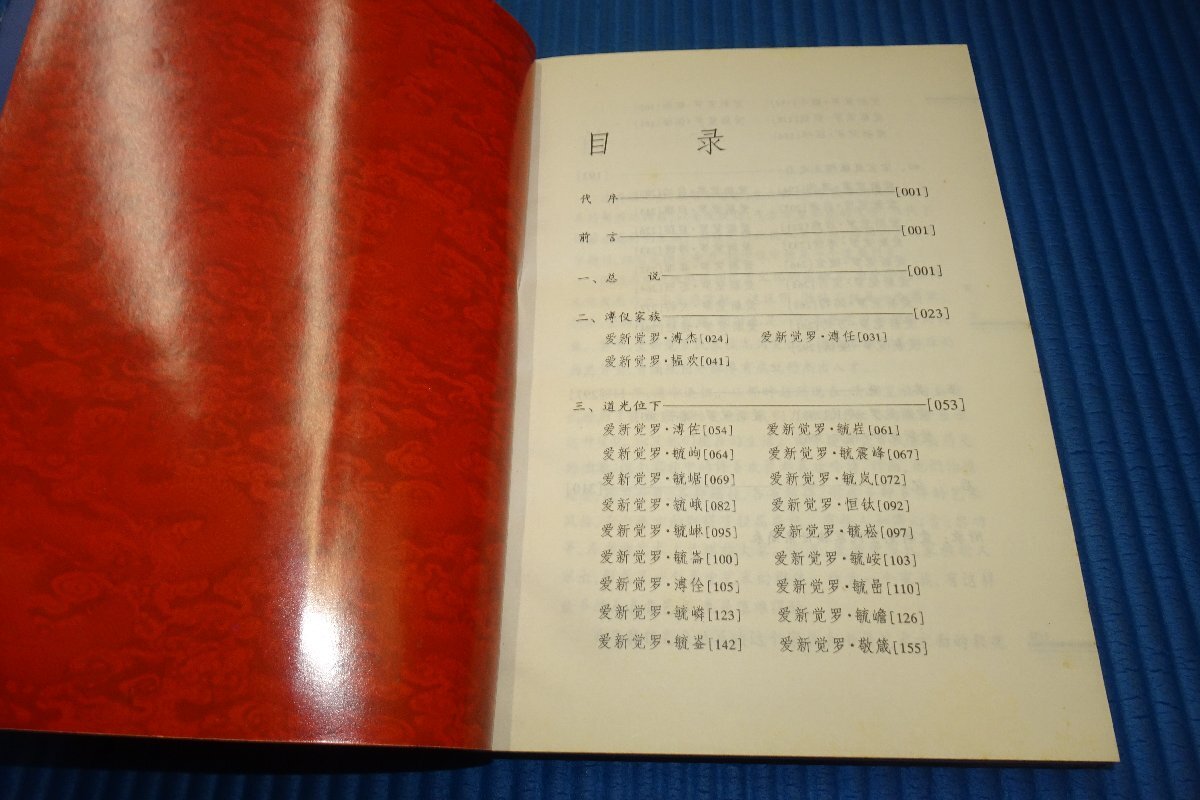 目 录
代 序[001]
前 言[001]
一、总 说[001]
二、溥仪家族[023]
爱新觉罗·溥杰[024] 爱新觉罗·溥任[031]
爱新觉罗·韫欢[041]
三、道光位下[053]
爱新觉罗·溥佐[054] 爱新觉罗·毓岩[061]
爱新觉罗·毓岣[064] 爱新觉罗·毓震峰[067]
爱新觉罗·毓崌[069] 爱新觉罗·毓岚[072]
爱新觉罗·毓峨[082] 爱新觉罗·恒钛[092]
爱新觉罗·毓㟭[095] 爱新觉罗·毓崧[097]
爱新觉罗·毓嵛[100] 爱新觉罗·毓峖[103]
爱新觉罗·溥佺[105] 爱新觉罗·毓嵒[110]
爱新觉罗·毓嶙[123] 爱新觉罗·毓嶦[126]
爱新觉罗·毓崟[142] 爱新觉罗·敬箴[155]